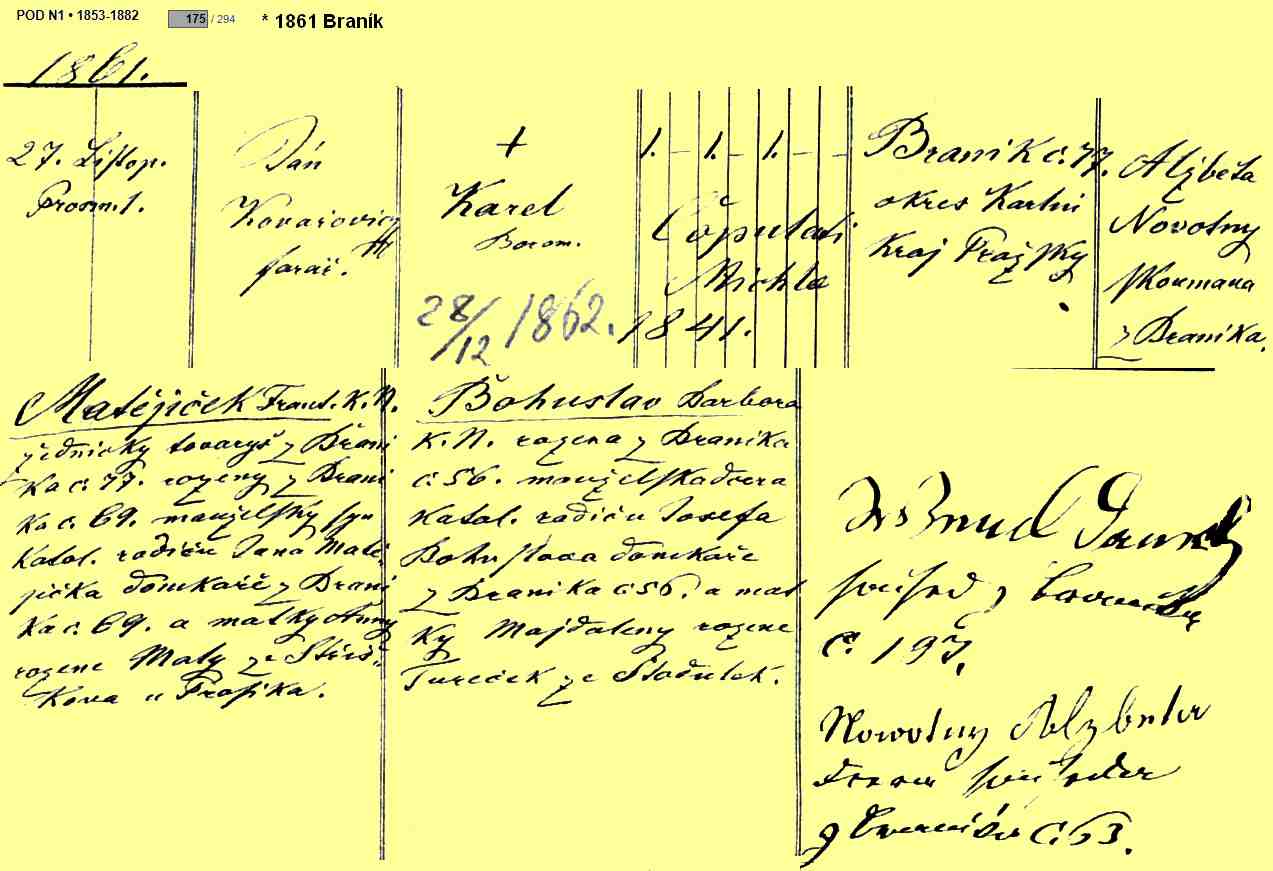 POD N1 • 1853-1882 175 / 294 * 1861 Braník
1861.
27. Listop.
Prosin. 1.
Ján
Kovařovicz
farář.
+
Karel
Borom.
28/12 1862.
1. – 1. – 1. – –
Čopulati
Michle
1841.
Branik č. 77.
okres Karlin
Kraj Pražský
Alžběta
Novotny
skoumana
z Branika.
Matějiček Frant. K. N.
zednicky tovaryš z Brani
ka č. 77. rozeny z Brani
ka č. 69. manželsky syn
Katol. rodičů Jana Matě-
jička domkaře z Brani
ka č. 69. a matky Anny
rozene Maly ze Střiš-
kova u Prosika.
Bohuslav Barbora
K. N. rozena z Branika
č. 56. manželska dcera
Katol. rodičů Josefa
Bohuslava domkaře
z Branika č. 56. a mat
ky Majdaleny rozene
Tureček ze Stodulek.
soused z
č. 197.
Nowotny Alzbeta
dcera souseda
z Branika č. 63.